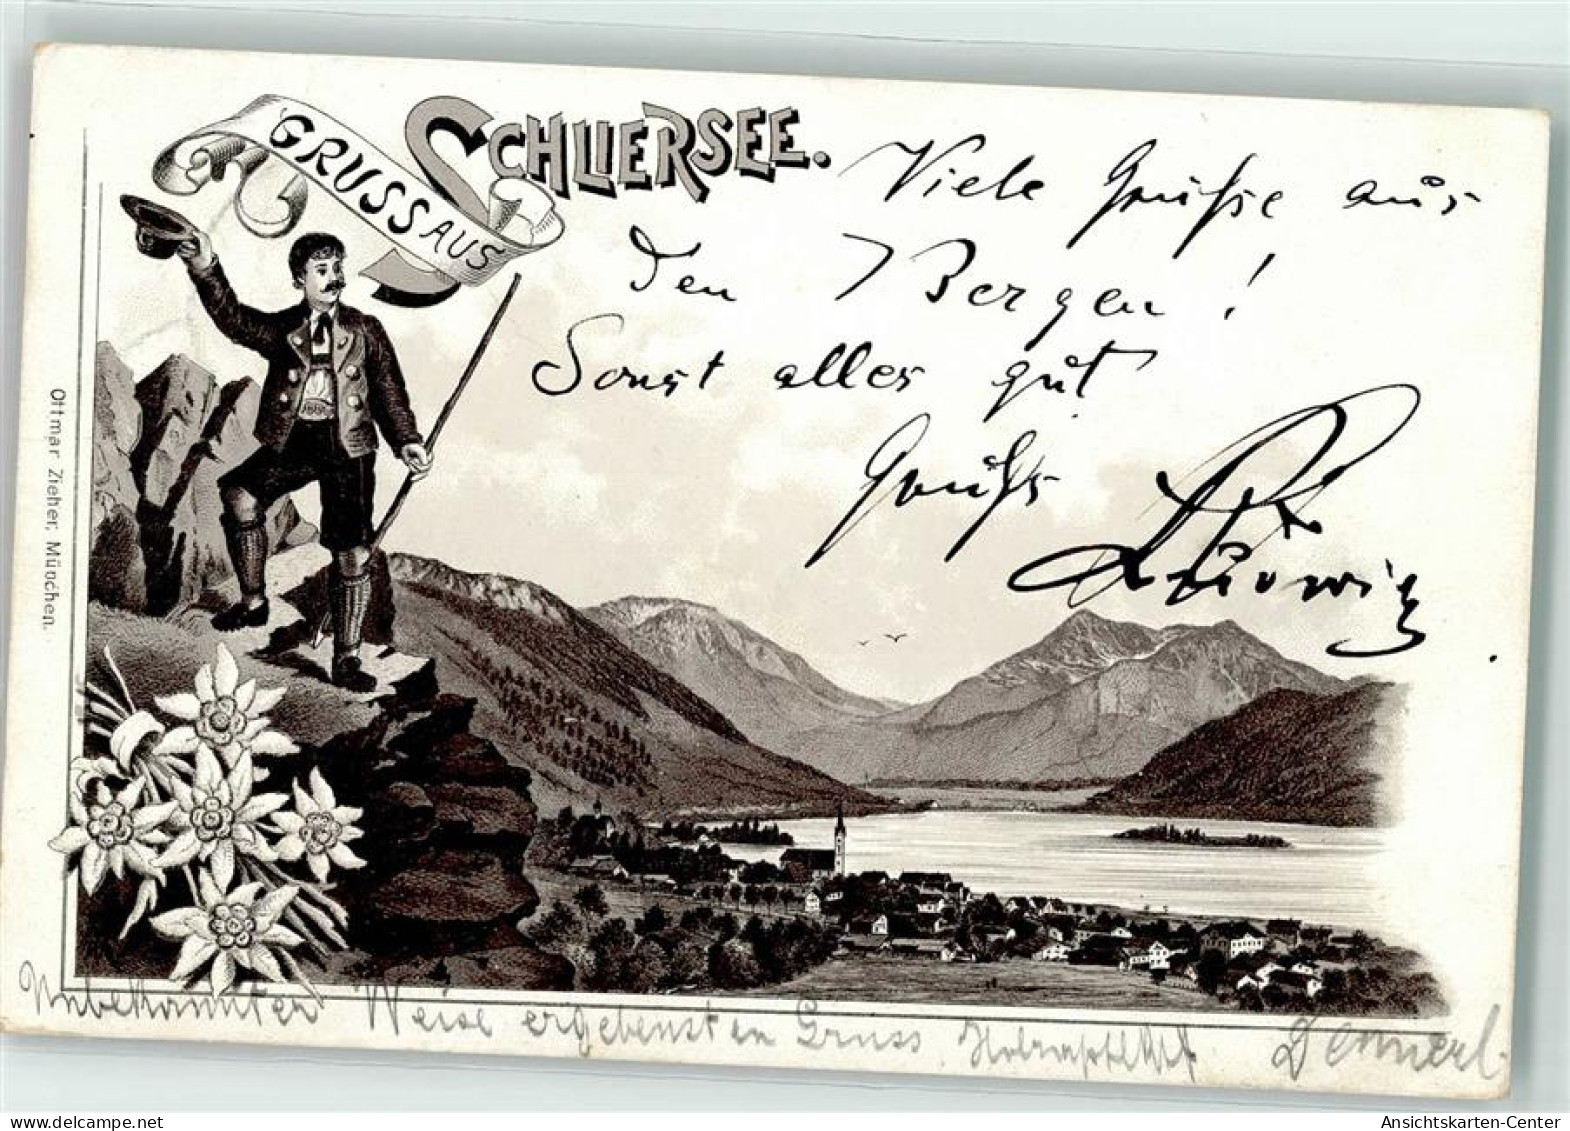 GRUSS AUS
SCHLIERSEE.
Viele Grüsse aus
den 7 Bergen!
Sonst alles gut
Gruss
Ludwig.
Ottmar Zieher, München.
Unbekannter Weise ergebensten Gruss
delcampe.net
Ansichtskarten-Center